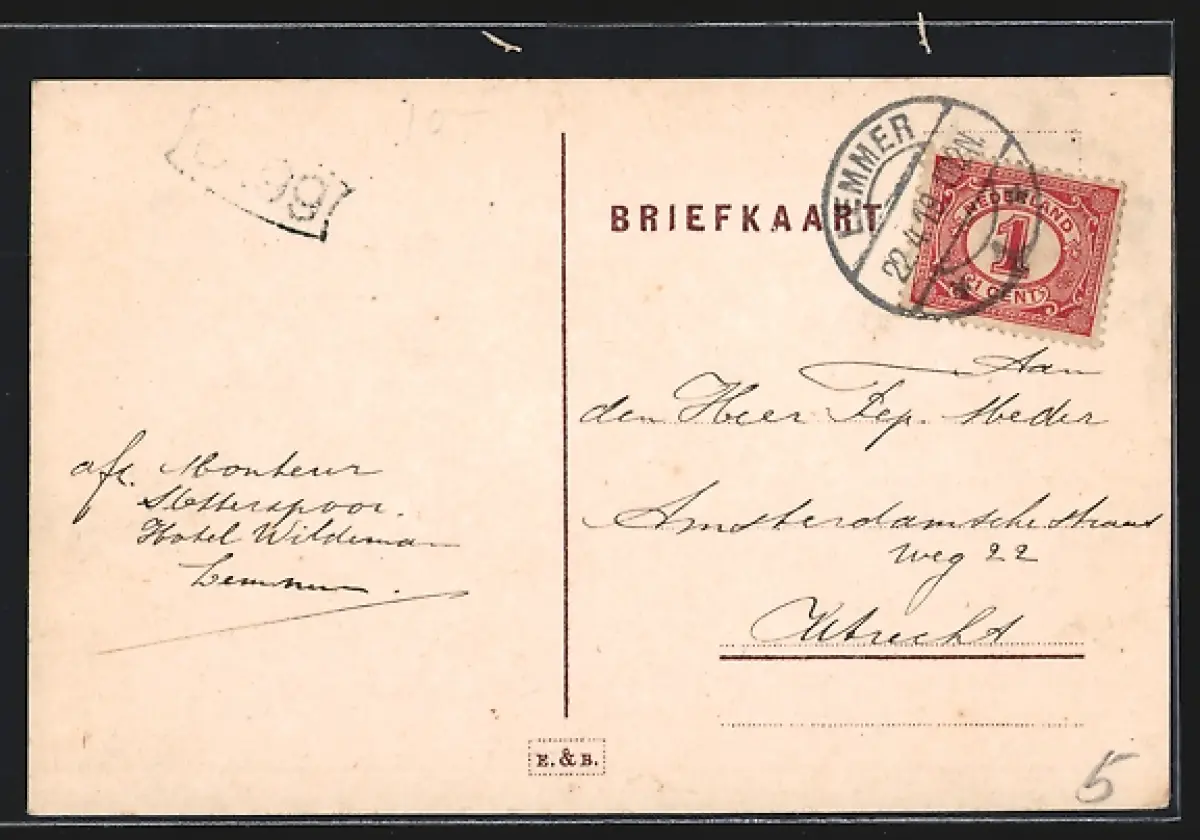 10-
BRIEFKAART
LEMMER
22.4.19
12N.
NEDERLAND
1
1 CENT
Aan
den Heer Meder
Amsterdamsche straat
weg 22
Utrecht
afz. Monteur
Hotel Wildeman
Lemmer.
E. & B.
5